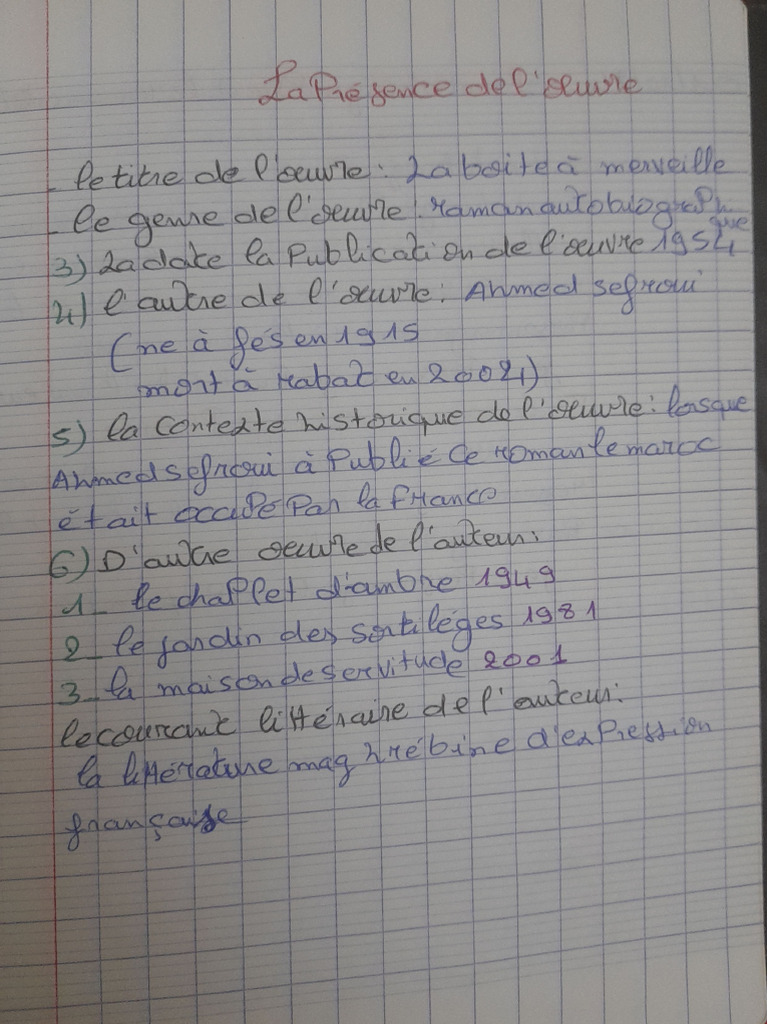 La Présence de l'œuvre
- le titre de l'œuvre : La boite à merveille
- le genre de l'œuvre : roman autobiographique
3) La date la Publication de l'œuvre 1954
4) l'autre de l'œuvre : Ahmed sefrioui
(ne à fés en 1915
mort à rabat en 2004)
5) la contexte historique de l'œuvre : lorsque
Ahmed sefrioui à Publié ce roman le maroc
était occupé Par la france
6) D'autre œuvre de l'auteur :
1_ le chapplet d'ambre 1949
2_ le jardin des sortiléges 1981
3_ la maison de servitude 2001
le courant littéraire de l'auteur :
la littérature maghrébine d'expression
française